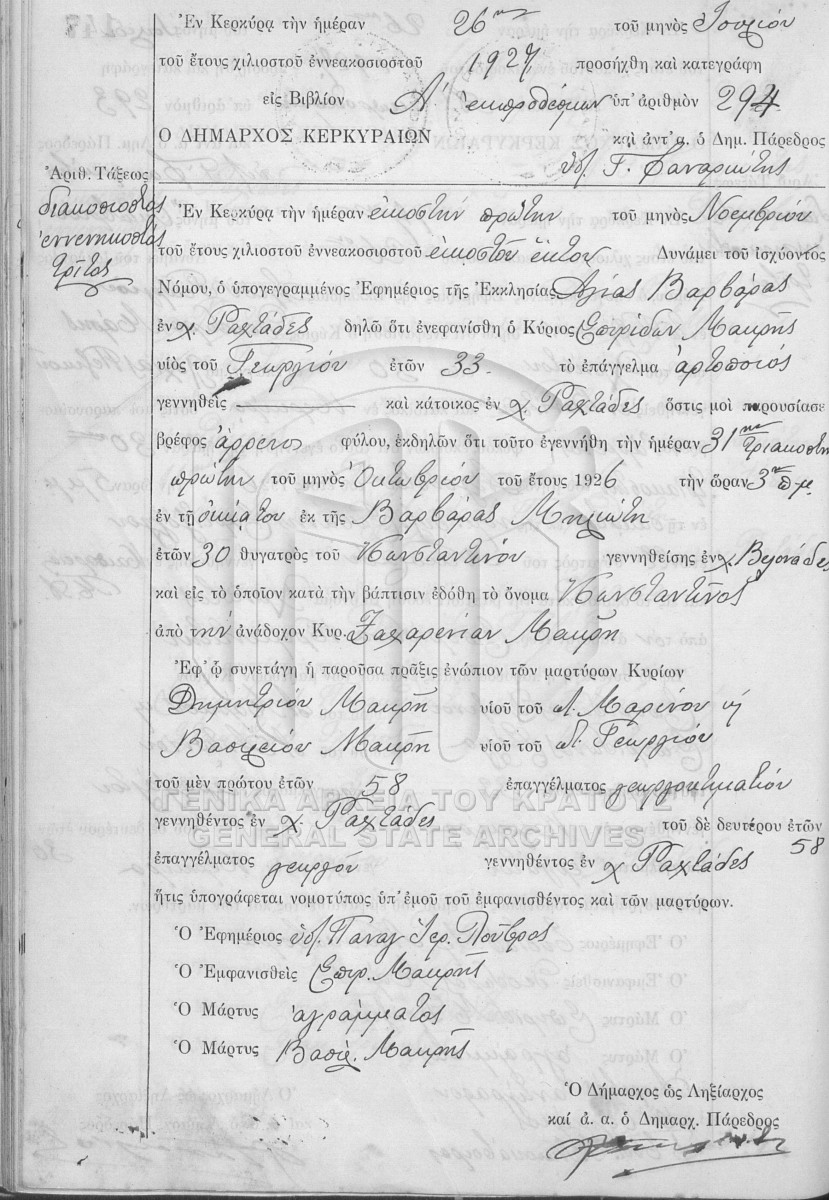 Ἐν Κερκύρᾳ τὴν ἡμέραν 26ην τοῦ μηνὸς Ἰουλίου
τοῦ ἔτους χιλιοστοῦ ἐννεακοσιοστοῦ 1927 προσήχθη καὶ κατεγράφη
εἰς Βιβλίον Α' ἐκπροθέσμων ὑπ' ἀριθμὸν 294
Ο ΔΗΜΑΡΧΟΣ ΚΕΡΚΥΡΑΙΩΝ καὶ ἀντ' α. ὁ Δημ. Πάρεδρος
Ἀριθ. Τάξεως
διακοσιοστὸς
ἐννενηκοστὸς
τρίτος
Ἐν Κερκύρᾳ τὴν ἡμέραν εἰκοστὴν πρώτην τοῦ μηνὸς Νοεμβρίου
τοῦ ἔτους χιλιοστοῦ ἐννεακοσιοστοῦ εἰκοστοῦ ἕκτου Δυνάμει τοῦ ἰσχύοντος
Νόμου, ὁ ὑπογεγραμμένος Ἐφημέριος τῆς Ἐκκλησίας Ἁγίας Βαρβάρας
ἐν χ. Ραχτάδες δηλῶ ὅτι ἐνεφανίσθη ὁ Κύριος Σπυρίδων Μακρῆς
υἱὸς τοῦ Γεωργίου ἐτῶν 33 τὸ ἐπάγγελμα ἀρτοποιός
γεννηθεὶς — καὶ κάτοικος ἐν χ. Ραχτάδες ὅστις μοὶ παρουσίασε
βρέφος ἄρρενος φύλου, ἐκδηλῶν ὅτι τοῦτο ἐγεννήθη τὴν ἡμέραν 31ην τριακοστὴν
πρώτην τοῦ μηνὸς Ὀκτωβρίου τοῦ ἔτους 1926 τὴν ὥραν 3ην πμ
ἐν τῇ οἰκίᾳ του ἐκ τῆς Βαρβάρας Μηλιώτη
ἐτῶν 30 θυγατρὸς τοῦ Κωνσταντίνου γεννηθείσης ἐν χ. Βελονάδες
καὶ εἰς τὸ ὁποῖον κατὰ τὴν βάπτισιν ἐδόθη τὸ ὄνομα Κωνσταντῖνος
ἀπὸ τὴν ἀνάδοχον Κυρ. Ζαχαρενίαν Μακρῆ
Ἐφ' ᾧ συνετάγη ἡ παροῦσα πρᾶξις ἐνώπιον τῶν μαρτύρων Κυρίων
Δημητρίου Μακρῆ υἱοῦ τοῦ Μαρίνου
Βασιλείου Μακρῆ υἱοῦ τοῦ Γεωργίου
τοῦ μὲν πρώτου ἐτῶν 58 ἐπαγγέλματος γεωργοκτηματίου
ΓΕΝΙΚΑ ΑΡΧΕΙΑ ΤΟΥ ΚΡΑΤΟΥΣ
γεννηθέντος ἐν χ. Ραχτάδες τοῦ δὲ δευτέρου ἐτῶν 58
GENERAL STATE ARCHIVES
ἐπαγγέλματος γεωργοῦ γεννηθέντος ἐν χ Ραχτάδες
ἥτις ὑπογράφεται νομοτύπως ὑπ' ἐμοῦ τοῦ ἐμφανισθέντος καὶ τῶν μαρτύρων.
Ὁ Ἐφημέριος ὑπ. Παναγ. Ἱερ.
Ὁ Ἐμφανισθεὶς Σπυρ. Μακρῆς
Ὁ Μάρτυς ἀγράμματος
Ὁ Μάρτυς Βασιλ. Μακρῆς
Ὁ Δήμαρχος ὡς Ληξίαρχος
καί ἀ. α. ὁ Δημαρχ. Πάρεδρος